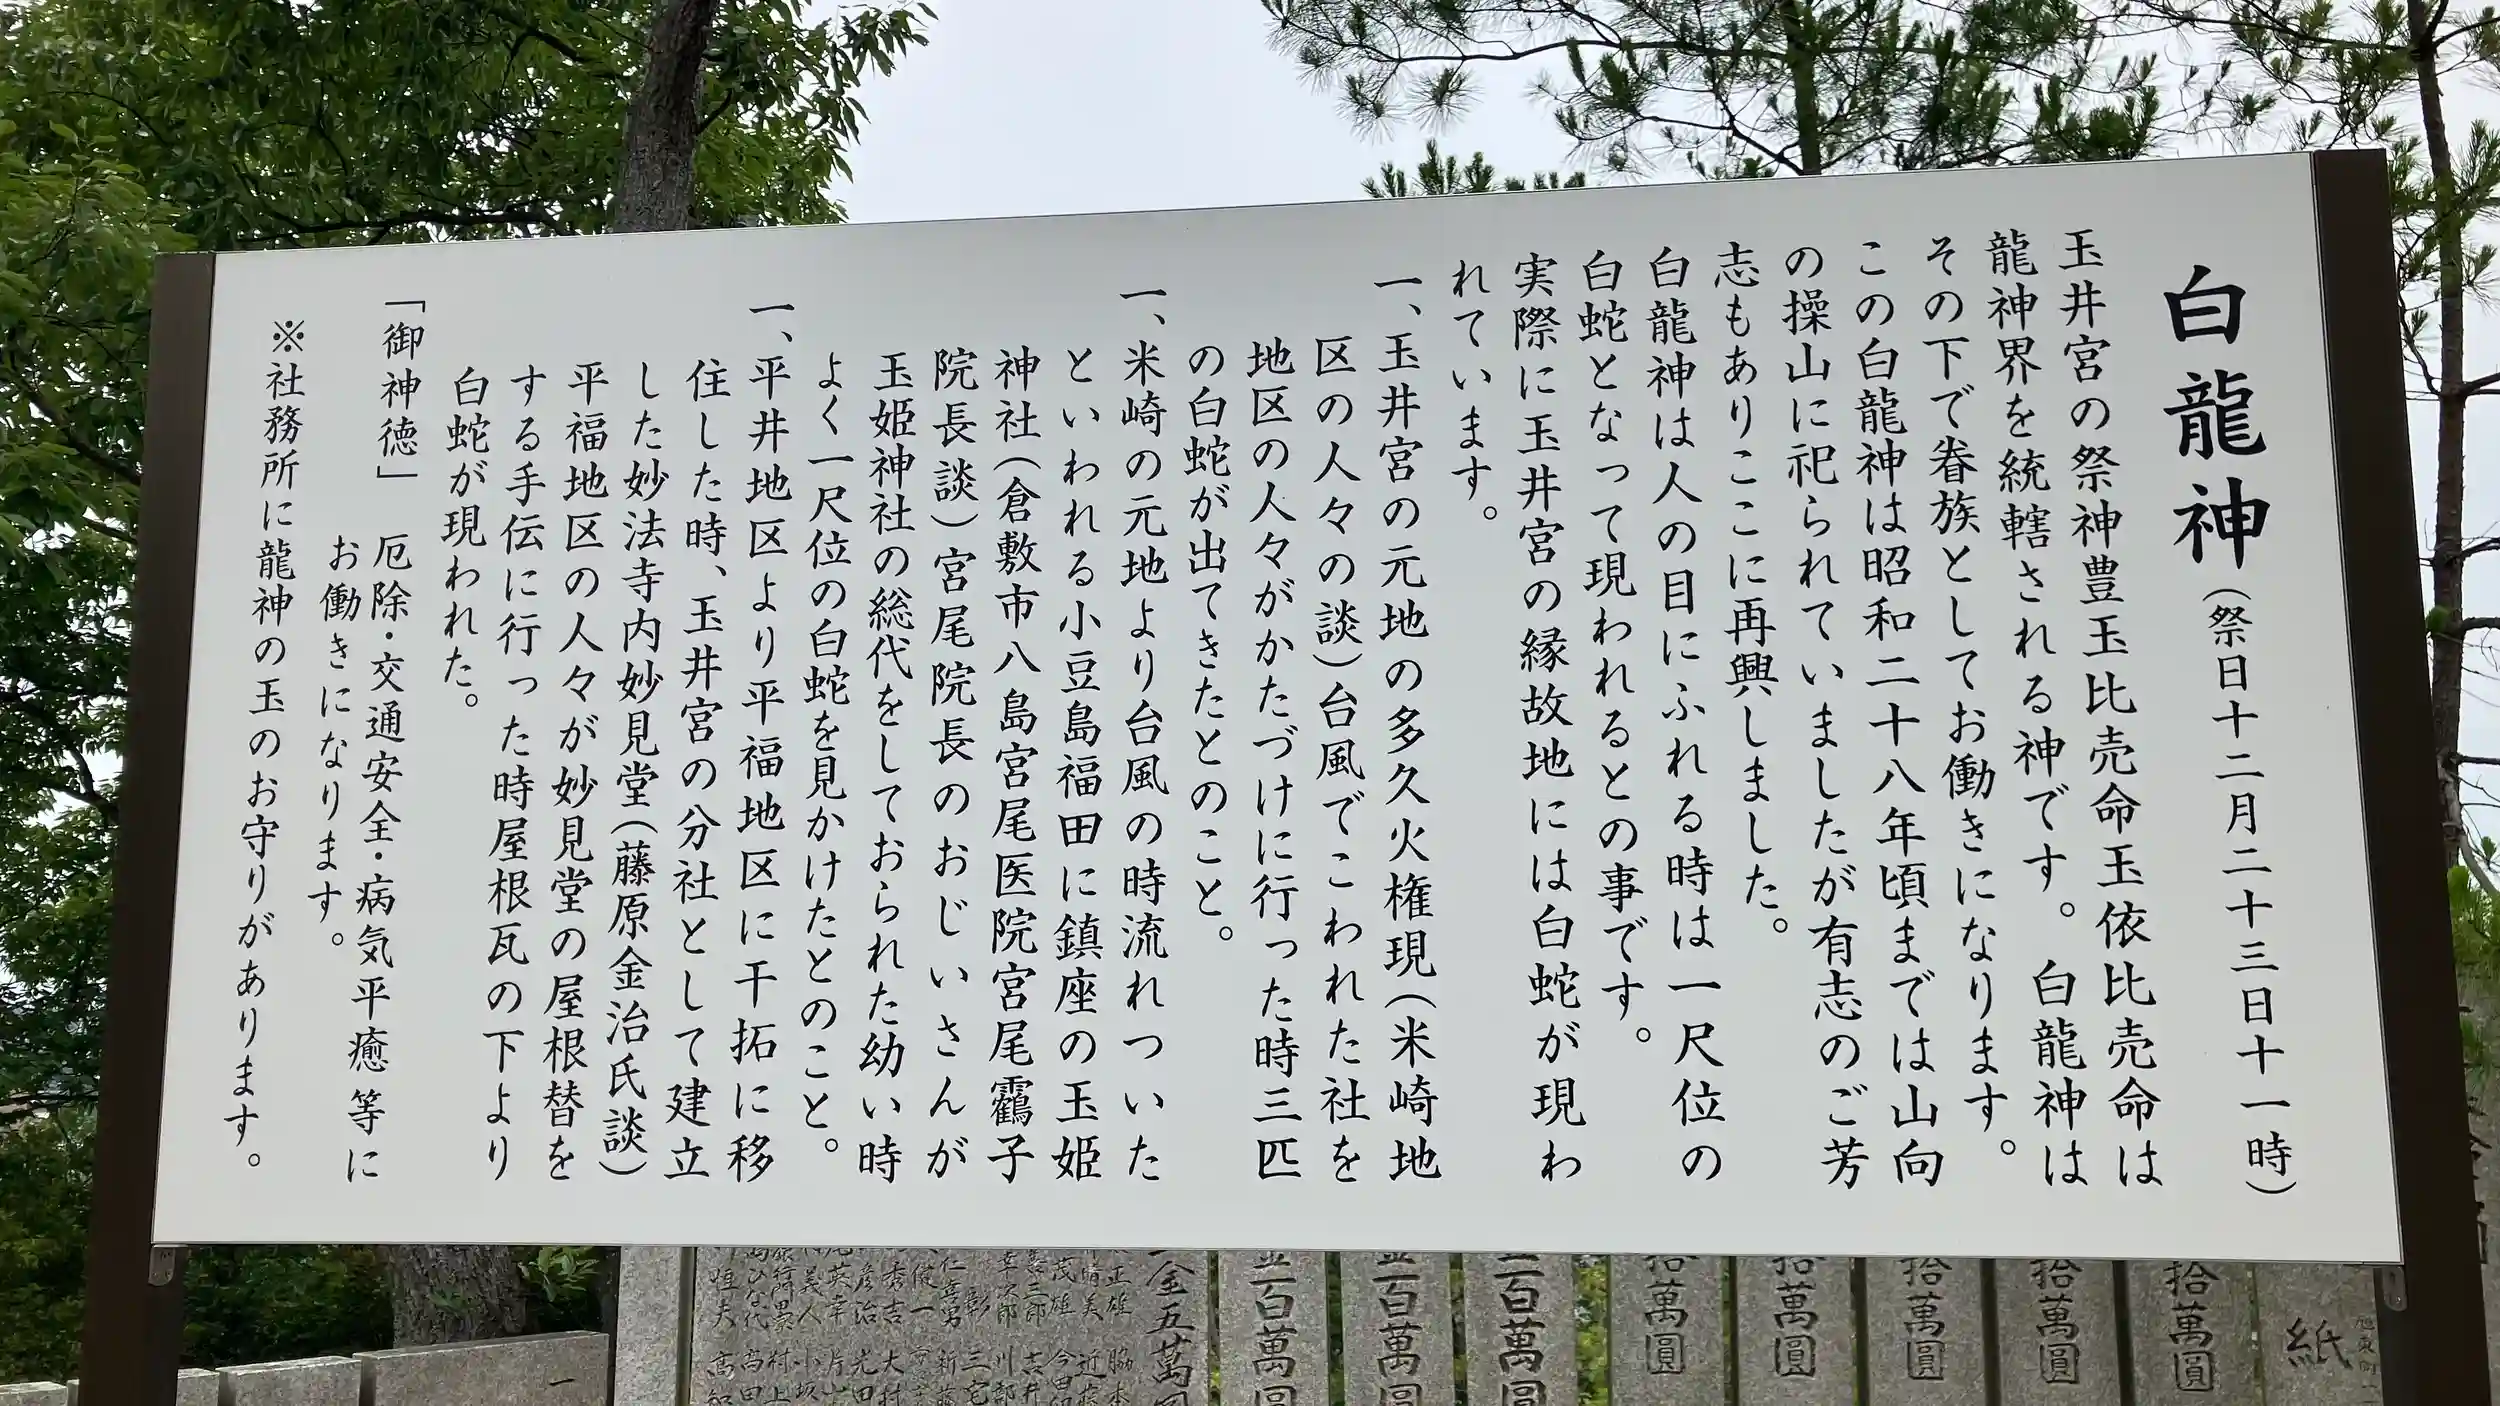 白龍神(祭日十二月二十三日十一時)
玉井宮の祭神豊玉比売命玉依比売命は
龍神界を統轄される神です。白龍神は
その下で眷族としてお働きになります。
この白龍神は昭和二十八年頃までは山向
の操山に祀られていましたが有志のご芳
志もありここに再興しました。
白龍神は人の目にふれる時は一尺位の
白蛇となって現われるとの事です。
実際に玉井宮の縁故地には白蛇が現わ
れています。
一、玉井宮の元地の多久火権現(米崎地
区の人々の談)台風でこわれた社を
地区の人々がかたづけに行った時三匹
の白蛇が出てきたとのこと。
一、米崎の元地より台風の時流れついた
といわれる小豆島福田に鎮座の玉姫
神社(倉敷市八島宮尾医院宮尾靏子
院長談)宮尾院長のおじいさんが
玉姫神社の総代をしておられた幼い時
よく一尺位の白蛇を見かけたとのこと。
一、平井地区より平福地区に干拓に移
住した時、玉井宮の分社として建立
した妙法寺内妙見堂(藤原金治氏談)
平福地区の人々が妙見堂の屋根替を
する手伝に行った時屋根瓦の下より
白蛇が現われた。
「御神徳」 厄除・交通安全・病気平癒等に
お働きになります。
※社務所に龍神の玉のお守りがあります。
紙
拾萬圓
拾萬圓
拾萬圓
拾萬圓
拾萬圓
百萬圓
百萬圓
百萬圓
金五萬圓